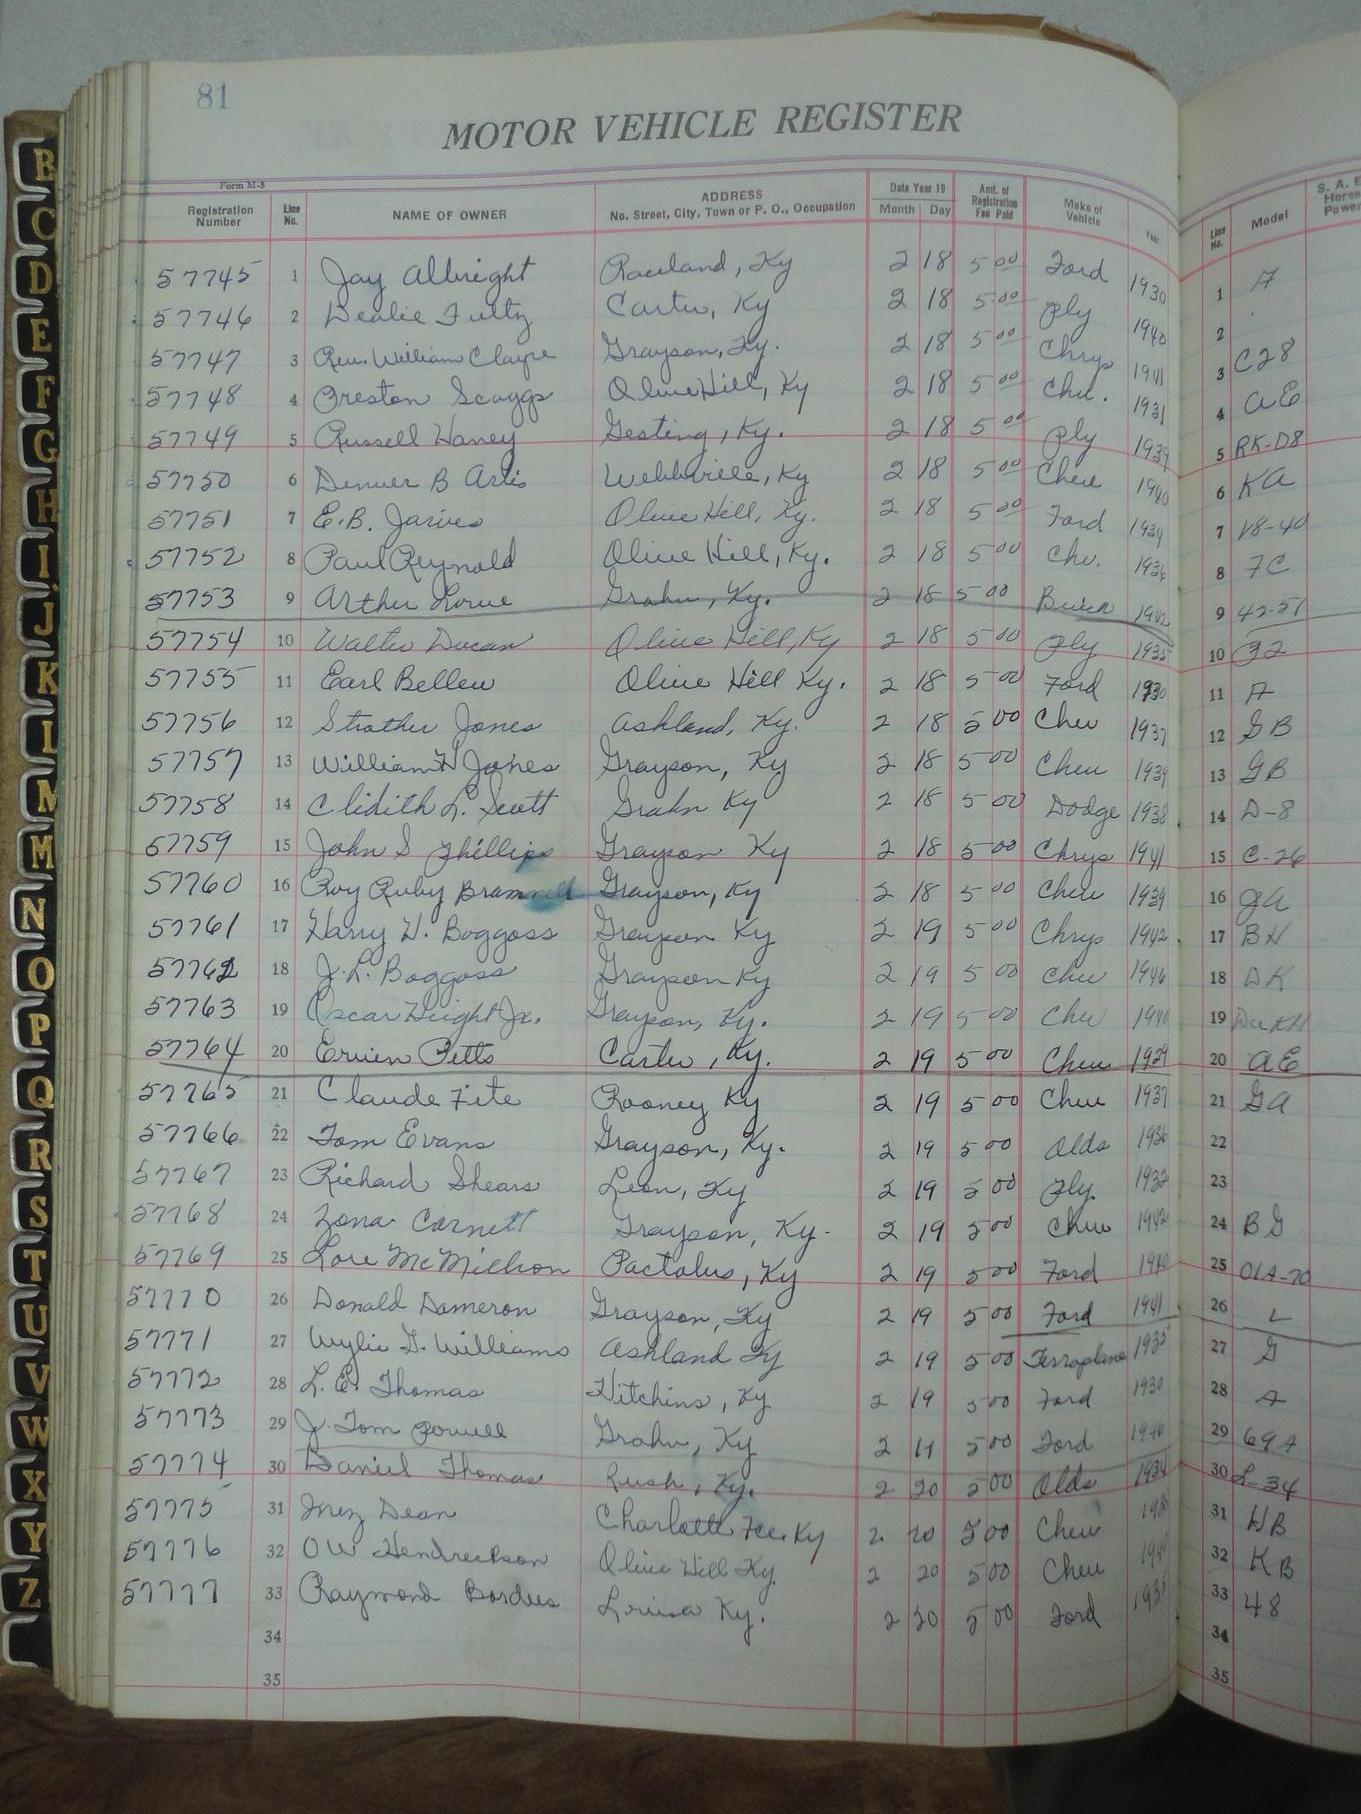 81
MOTOR VEHICLE REGISTER
Form M-5
Registration Number Line No. NAME OF OWNER ADDRESS No. Street, City, Town or P. O., Occupation Date Year 19 Month Day Amt. of Registration Fee Paid Make of Vehicle Year Line No. Model S. A. E. Horse Power
57745 1 Jay Albright Ky 2 18 5 00 Ford 1930 1 A
57746 2 Carter, Ky 2 18 5 00 Ply 1940 2
57747 3 Rev. William Grayson, Ky. 2 18 5 00 Chrys 1941 3 C28
57748 4 Preston Scaggs Olive Hill, Ky 2 18 5 00 Chev. 1931 4 AE
57749 5 Russell Haney Gesling, Ky. 2 18 5 00 Ply 1939 5 RK-D8
57750 6 Denver B Webbville, Ky 2 18 5 00 Chev 1940 6 KA
57751 7 E.B. Olive Hill, Ky. 2 18 5 00 Ford 1934 7 V8-40
57752 8 Paul Reynold Olive Hill, Ky. 2 18 5 00 Chv. 1936 8 FC
57753 9 Arther Lowe Grahn, Ky. 2 18 5 00 Buick 1942 9 42-51
57754 10 Walter Olive Hill, Ky 2 18 5 00 Ply 1935 10
57755 11 Earl Bellew Olive Hill Ky. 2 18 5 00 Ford 1930 11 A
57756 12 Strother Jones Ashland, Ky. 2 18 5 00 Chev 1937 12 GB
57757 13 William H Jones Grayson, Ky 2 18 5 00 Chev 1939 13 GB
57758 14 L. Scott Grahn Ky 2 18 5 00 Dodge 1938 14 D-8
57759 15 John S Phillips Grayson Ky 2 18 5 00 Chrys 1941 15 C-26
57760 16 Roy Ruby Grayson, Ky 2 18 5 00 Chev 1939 16 JA
57761 17 Harry H. Boggess Grayson Ky 2 19 5 00 Chrys 1942 17 BH
57762 18 J.L. Boggess Grayson Ky 2 19 5 00 Chev 1946 18 DK
57763 19 Oscar Jr. Grayson, Ky. 2 19 5 00 Chev 1940 19
57764 20 Ervien Pitts Carter, Ky. 2 19 5 00 Chev 1929 20 AE
57765 21 Claude Fite Rooney Ky 2 19 5 00 Chev 1937 21 GA
57766 22 Tom Evans Grayson, Ky. 2 19 5 00 Olds 1936 22
57767 23 Richard Shears Leon, Ky 2 19 5 00 Ply. 1932 23
57768 24 Zona Cornett Grayson, Ky. 2 19 5 00 Chev 1942 24 BG
57769 25 McMillion Pactolus, Ky 2 19 5 00 Ford 1940 25 01A-70
57770 26 Donald Dameron Grayson, Ky 2 19 5 00 Ford 1941 26 L
57771 27 Wylie G. Williams Ashland Ky 2 19 5 00 Terraplane 1935 27 G
57772 28 L. E. Thomas Hitchins, Ky 2 19 5 00 Ford 1930 28 A
57773 29 J. Tom Powell Grahn, Ky 2 5 00 Ford 1946 29 69A
57774 30 Daniel Thomas Rush, Ky. 2 20 5 00 Olds 1934 30 L-34
57775 31 Inez Dean Charlotte Fee. Ky 2 20 5 00 Chev 31 HB
57776 32 OW Olive Hill Ky 2 20 5 00 Chev 32 KB
57777 33 Raymond Borders Louisa Ky. 2 20 5 00 Ford 1935 33 48
34 34
35 35
B
C
D
E
F
G
H
I
J
K
L
M
M
N
O
P
Q
R
S
T
U
V
W
X
Y
Z